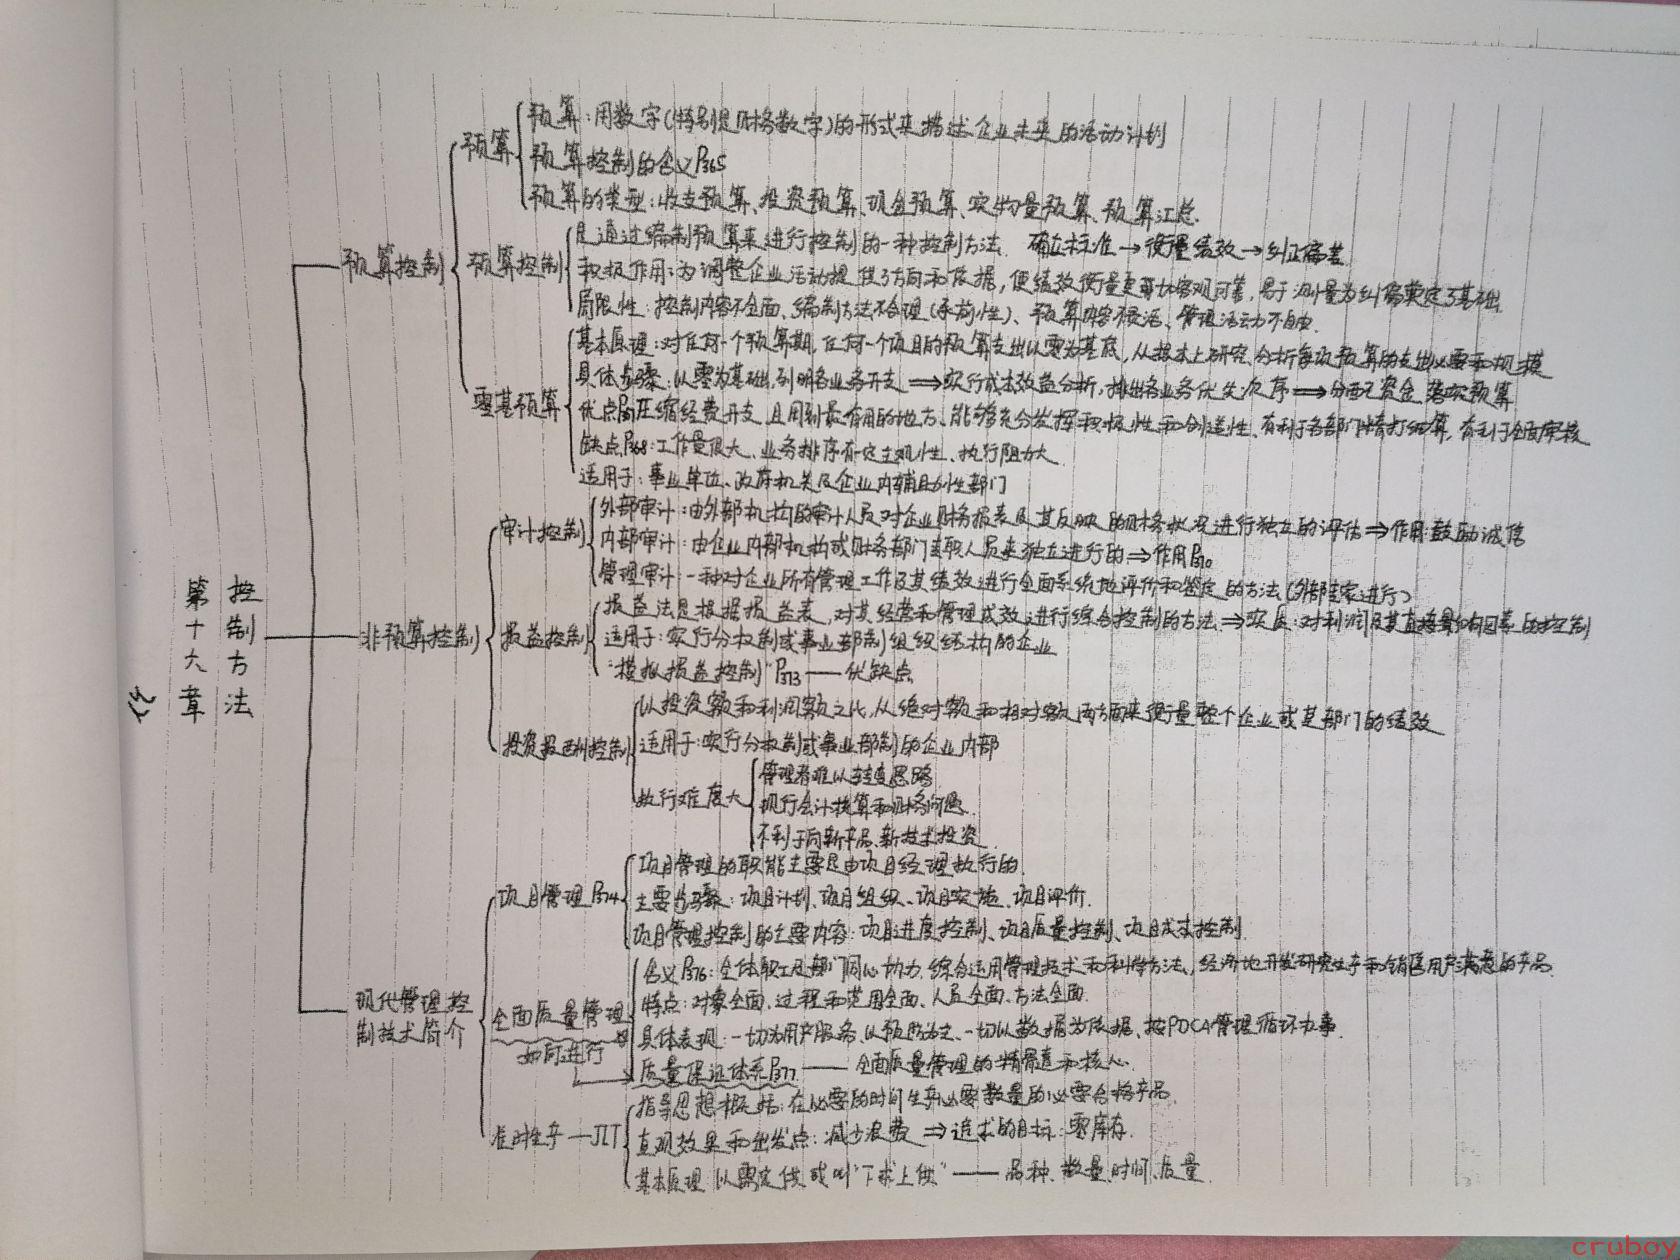 第十六章
控制方法
预算控制
预算
预算：用数字(特别是财务数字)的形式来描述企业未来的活动计划
预算控制的含义P365
预算的类型：收支预算、投资预算、现金预算、实物量预算、预算汇总.
预算控制
是通过编制预算来进行控制的一种控制方法. 确立标准→衡量绩效→纠正偏差
积极作用：为调整企业活动提供了方向和依据，使绩效衡量更加客观可靠，易于测量为纠偏奠定了基础
局限性：控制内容不全面、编制方法不合理(承前性)、预算内容不灵活、管理活动不自由.
零基预算
基本原理：对任何一个预算期，任何一个项目的预算支出以零为基底，从根本上研究、分析每项预算的支出必要和规模
具体步骤：以零为基础，列明各业务开支⇒实行成本效益分析，排出各业务优先次序⇒分配资金 落实预算
优点 压缩经费开支，且用到最有用的地方、能够充分发挥积极性和创造性、有利于各部门精打细算，有利于全面审核
缺点P368：工作量很大、业务排序有一定主观性、执行阻力大
适用于：事业单位、政府机关及企业内辅助性部门
非预算控制
审计控制
外部审计：由外部机构的审计人员对企业财务报表及其反映的财务状况进行独立的评估⇒作用：鼓励诚信
内部审计：由企业内部机构或财务部门专职人员来独立进行的⇒作用P370
管理审计：一种对企业所有管理工作及其绩效进行全面系统地评价和鉴定的方法(外部专家进行)
损益控制
损益法是根据损益表，对其经营和管理成效进行综合控制的方法⇒实质：对利润及其直接影响因素的控制
适用于：实行分权制或事业部制组织结构的企业
“模拟损益控制”P373——优缺点
投资报酬控制
以投资额和利润额之比，从绝对额和相对额两方面来衡量整个企业或某部门的绩效
适用于：实行分权制或事业部制的企业内部
执行难度大
管理者难以转变思路
现行会计核算和财务问题
不利于向新产品、新技术投资
现代管理控制技术简介
项目管理P374
项目管理的职能主要是由项目经理执行的.
主要步骤：项目计划、项目组织、项目实施、项目评价.
项目管理控制的主要内容：项目进度控制、项目质量控制、项目成本控制
全面质量管理
如何进行
含义P376：全体职工及部门同心协力，综合运用管理技术和科学方法，经济地开发研究生产和销售用户满意的产品.
特点：对象全面、过程和范围全面、人员全面、方法全面.
具体表现：一切为用户服务、以预防为主、一切以数据为依据、按PDCA管理循环办事.
质量保证体系P377——全面质量管理的精髓和核心.
准时生产—JIT
指导思想概括：在必要的时间生产必要数量的必要合格产品.
直观效果和出发点：减少浪费⇒追求的目标：零库存.
基本原理：以需定供或叫“下求上供”——品种、数量、时间、质量
cruboy